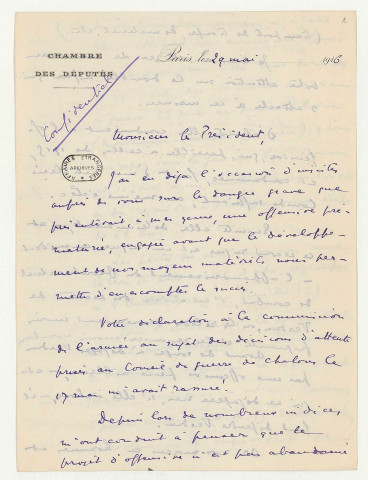 CHAMBRE
DES DÉPUTÉS
Paris, le 29 mai 1916
Confidentiel
Monsieur le Président,
AFFAIRES ÉTRANGÈRES
ARCHIVES
J'ai eu déjà l'occasion d'insister
auprès de vous sur le danger grave que
présenterait, à mes yeux, une offensive pré-
maturée, engagée avant que le développe-
ment de nos moyens matériels nous per-
mette d'en escompter le succès.
Votre déclaration à la commission
de l'armée au sujet des décisions d'attente
prises au Conseil de guerre de Chalons le
mai m'avait rassuré.
Depuis lors de nombreux indices
m'ont conduit à penser que le
projet d'offensive n'est pas abandonné